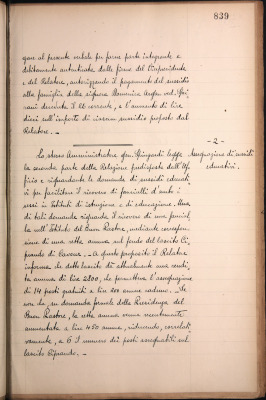 839
gare al presente verbale per farne parte integrante e
debitamente autenticata dalle firme del Vicepresidente
e del Relatore, autorizzando il pagamento del sussidio
alla famiglia della signora Argia ved.
decorrenza il 26 corrente, e l'aumento di lire
dieci sull'importo di ciascun sussidio proposto dal
Relatore. —
- 2 -
Assegnazione di sussidi
educativi.
Lo stesso Amministratore legge
la seconda parte della Relazione predisposta dall'Uf-
ficio e riguardante le domande di sussidi educati-
vi per facilitare il ricovero di fanciulli d'ambo i
sessi in Istituti di istruzione e di educazione. Una
di tali domande riguarda il ricovero di una fanciul-
la nell'Istituto del Buon Pastore, mediante correspon-
sione di una retta annua sul fondo del lascito Ci-
prando di Cavour. — A questo proposito il Relatore
informa che detto lascito dà attualmente una rendi-
ta annua di lire 2800, che permetteva l'assegnazione
di 14 posti gratuiti a lire 200 annue caduno. — Se
non che, su domanda formale della Presidenza del
Buon Pastore, la retta annua venne recentemente
aumentata a lire 450 annue, riducendo, correlati-
vamente, a 6 il numero dei posti assegnabili sul
lascito Ciprando. —